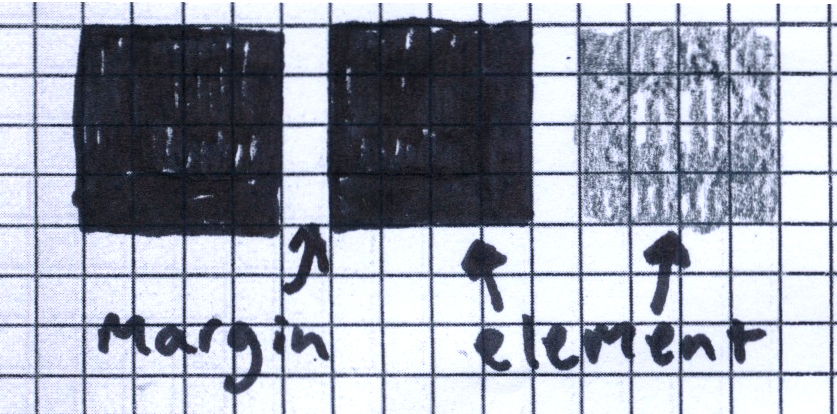 Margin element